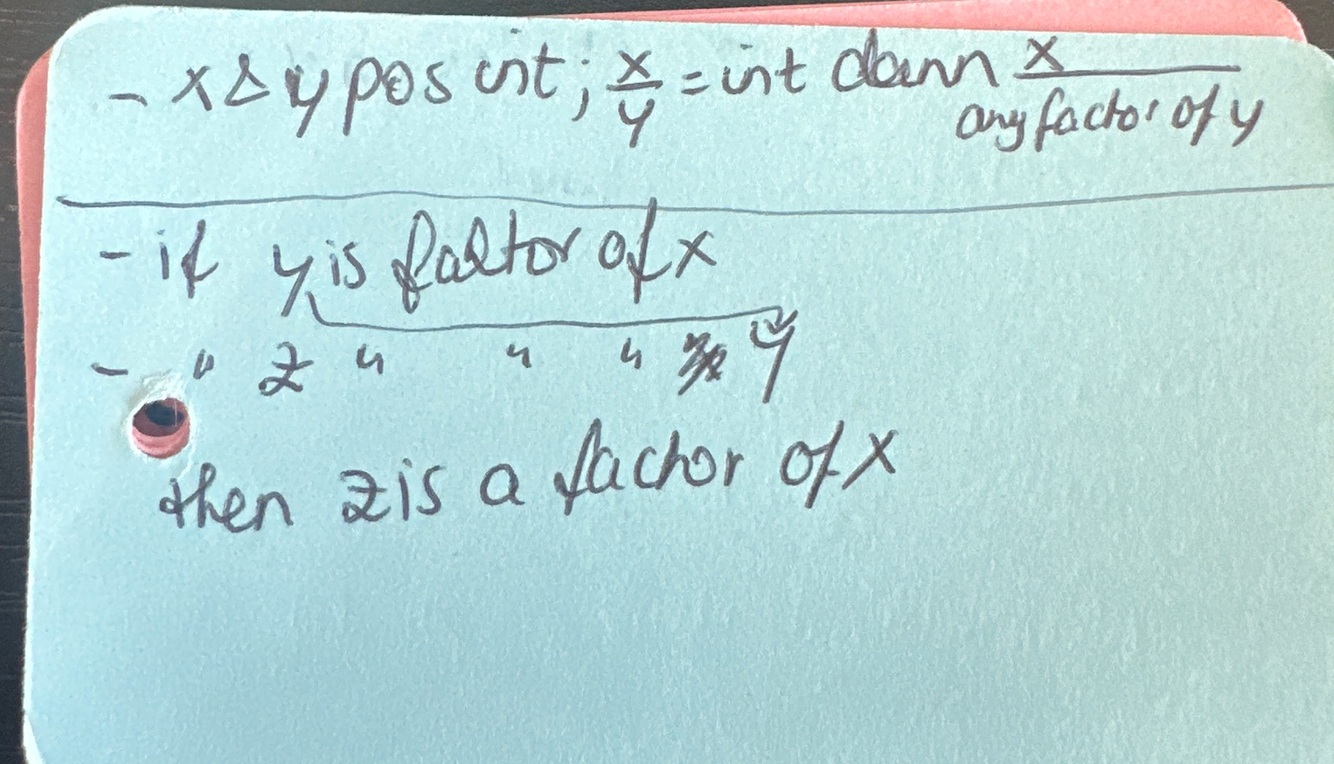 - x & y pos int; x/y = int dann x/any factor of y
- if y is factor of x
- " z " " " y
then z is a factor of x